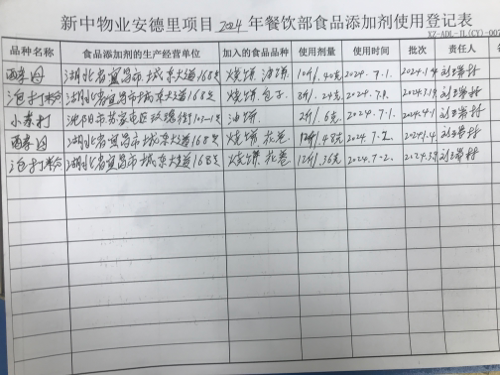 新中物业安德里项目2024年餐饮部食品添加剂使用登记表
XZ-ADL-JL(CY)-007
品种名称 食品添加剂的生产经营单位 加入的食品品种 使用剂量 使用时间 批次 责任人
酵母 湖北省宜昌市城东大道168号 烧饼 油饼 10斤/40克 2024.7.1.
泡打粉 湖北省宜昌市城东大道168号 烧饼.包子 8斤/24克 2024.7.1.
小苏打 沈阳市苏家屯区玫瑰街101-1号 油饼 2斤/6克 2024.7.1
酵母 湖北省宜昌市城东大道168号 烧饼 花卷 2024.7.2.
泡打粉 湖北省宜昌市城东大道168号 烧饼 花卷 12斤/36克 2024.7.2.